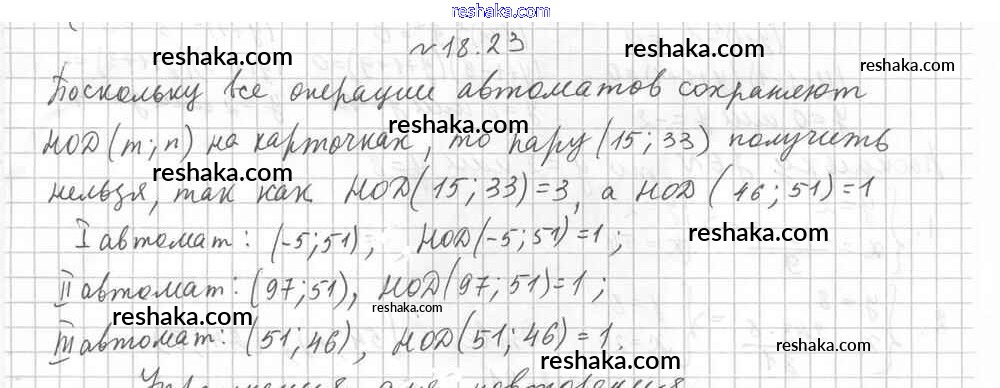 reshaka.com
№18.23
Поскольку все операции автоматов сохраняют
НОД(m;n) на карточках, то пару (15;33) получить
нельзя, так как НОД(15;33)=3, а НОД(46;51)=1
I автомат: (-5;51), НОД(-5;51)=1;
II автомат: (97;51), НОД(97;51)=1;
III автомат: (51;46), НОД(51;46)=1.
Упражнения для повторения
reshaka.com
reshaka.com
reshaka.com
reshaka.com
reshaka.com
reshaka.com
reshaka.com
reshaka.com
reshaka.com
reshaka.com